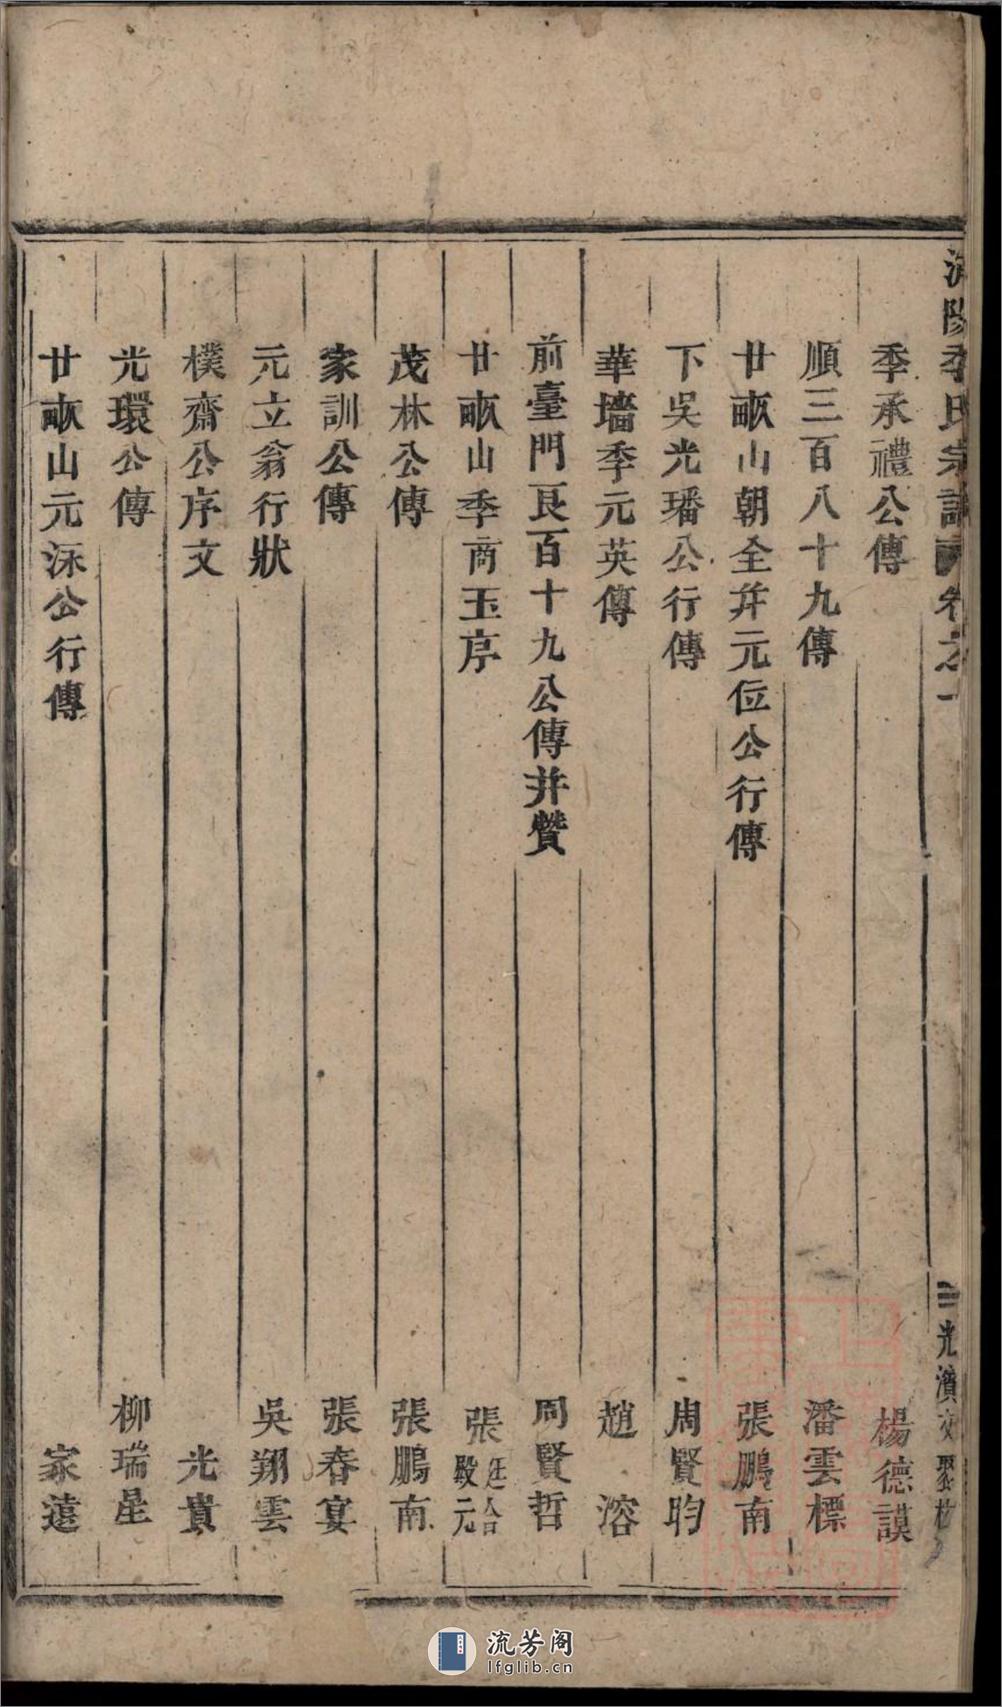 季氏宗譜 卷之一
季承禮公傳 楊德謨
順三百八十九傳 潘雲標
廿畝山朝全并元位公行傳 張鵬南
下吳光璠公行傳 周賢昀
華墻季元英傳 趙溶
前臺門良百十九公傳并贊 周賢哲
廿畝山季商玉序 張殿元
茂林公傳 張鵬南
家訓公傳 張春宴
元立翁行狀 吳翔雲
樸齋公序文 光貴
光環公傳 柳瑞星
廿畝山元洣公行傳 家遠
三 光濱 聚
流芳阁
lfglib.cn